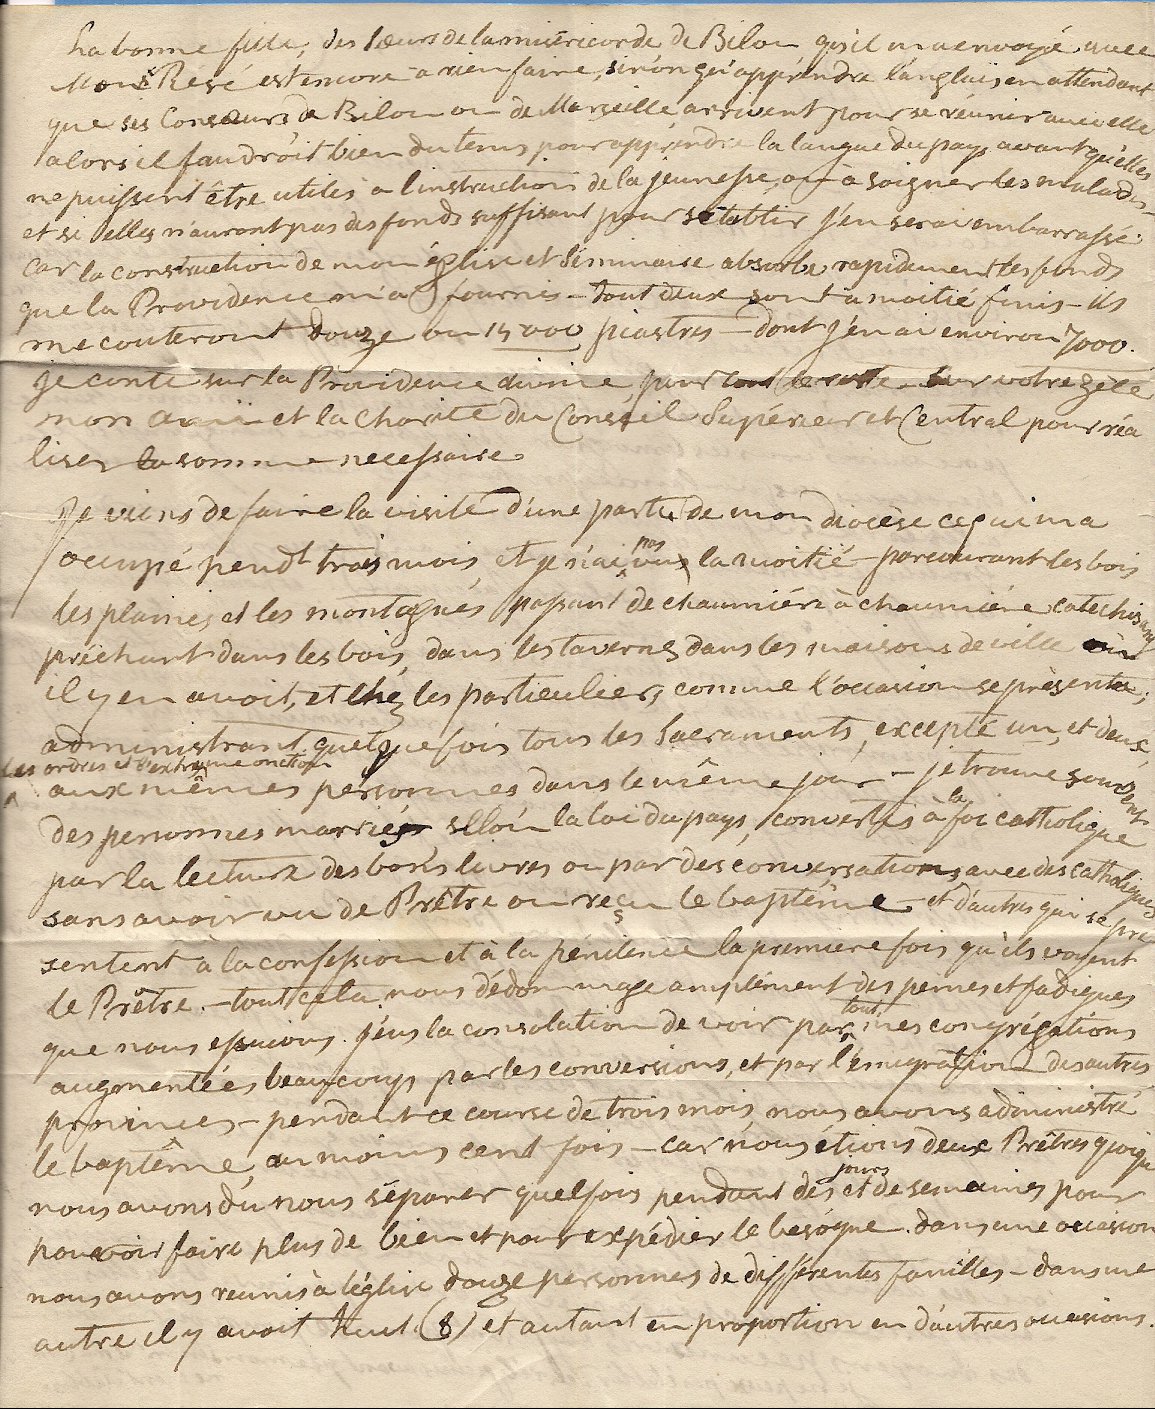 La bonne fille, des Sœurs de la misericorde de Bilom qu'il m'a envoyé avec
Monsr Résé est encore à rien faire, sinon qu'apprendre l'anglais en attendant
que ses Consœurs de Bilom ou de Marseille arrivent pour se réunir avec elle
alors il faudroit bien du tems pour apprendre la langue du pays avant qu'elles
ne puissent être utiles à l'instruction de la jeunesse, ou à soigner les malades_
et si elles n'auront pas des fonds suffisant pour s'établir j'en serai embarrassé.
car la construction de mon église et Séminaire absorbe rapidement les fonds
que la Providence m'a fournis – tout deux sont à moitié finis – ils
me couteront douze ou 15 000 piastres – dont j'en ai environ 7000.
je conte sur la Providence divine pour tout le reste – sur votre zèle
mon ami et la charité du Conseil Supérieur et Central pour réa
liser la somme necessaire
Je viens de faire la visite d'une partie de mon diocèse ce qui m'a
occupé pendt trois mois, et je n'ai pas vu la moitié – parcourant les bois
les plaines et les montagnes, passant de chaumière à chaumière catechisant
préchant dans les bois, dans les tavernes dans les maisons de ville où
il y en avoit, et chez les particuliers, comme l'occasion se présenta,
administrant quelquefois tous les Sacraments, excepté un, et deux
les ordres et l'extreme onction
aux mêmes personnes dans le même jour – je trouve souvent
des personnes marriés sellón la loi du pays, convertis à la foi catholique
par la lecture des bons livres ou par des conversations avec des catholiques
sans avoir vu de Prêtre ou reçu le baptême – et d'autres qui se pré
sentent à la confession et à la pénitence la premiere fois qu'ils voyent
le Prêtre. – tout cela nous dédommage amplement des peines et fatigues
que nous essuions. j'eus la consolation de voir par tout mes congrégations
augmentées beaucoup par les conversions, et par l'emigration des autres
provinces – pendant ce course de trois mois nous avons administré
le baptême, au moins cent fois – car nous étions deux Prêtres quoique
nous avons dû nous séparer quelfois pendant des jours et de semaines pour
pouvoir faire plus de bien et pour expédier le besogne. dans une occasion
nous avons reunis à l'église douze personnes de différentes familles – dans une
autre il y avoit huit (8) et autant en proportion en d'autres occasions.